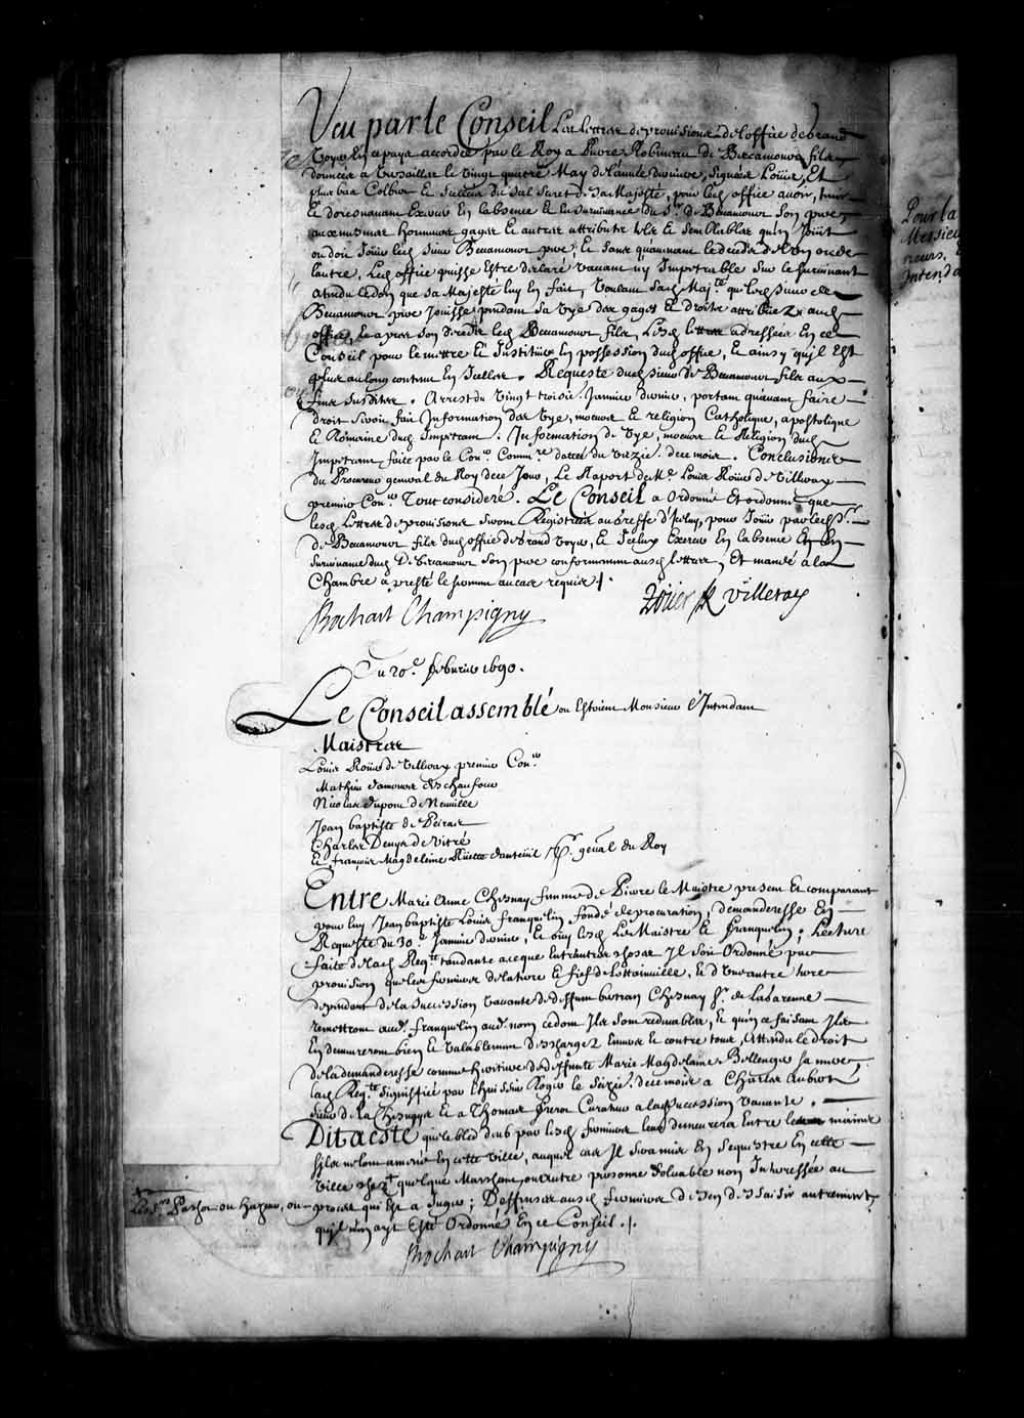 Veu par le Conseil Les lettres de provisions de l'office de grand
Voyer En ce pays accordées par le Roy a Pierre Robineau de Becancour fils
données a Versailles le Vingt quatre May de l'année derniere, signées Loüis, Et
plus bas Colbert Et scellées du scel secret de sa Majesté, pour led. office avoir, tenir
Et doresnavant Exercer En l'absence Et En survivance du Sr. de Becancour son pere
aux mesmes honneurs gages Et autres attributs tels Et semblables qu'en Joüit
ou doit Joüir led. sieur Becancour pere, Et sans qu'avenant le deceds de l'un ou de
l'autre, Led. office puisse Estre declaré vacant ny Impetrable sur le survivant
atendu le don que sa Majesté luy En fait, Voulant sad. Majté. que led. sieur de
Becancour pere Jouisse pendant sa vye des gages Et droits attribuez aud.
office, Et apres son deceds led. Becancour fils, Lesd. lettres adressées En ce
Conseil pour le mettre Et Instituer En possession dud. office, Et ainsy qu'il Est
plus au long contenu En Icelles. Requeste dud. sieur de Becancour fils aux
fins susdites. Arrest du Vingt troisie. Janvier dernier, portant qu'avant faire
droit seroit fait Information des vye, moeurs Et religion Catholique, apostolique
Et Romaine dud. Impetrant. Information de vye, moeurs Et Religion dud.
Impetrant faite par le Conr. Commre. dattée du treizie. de ce mois. Conclusions
du Procureur general du Roy de ce Jour, Le Raport de Me. Louis Roüer de Villeray
premier Conr. Tout consideré. Le Conseil a Ordonné Et ordonne que
lesd. Lettres de provisions seront Registrées au greffe d'Iceluy, pour Joüir par led. Sr.
de Becancour fils dud. office de grand Voyer, Et Iceluy Exercer En l'absence Et En
survivance dud. Sr. de Becancour son pere conformement ausd. lettres, Et mandé a la
Chambre a presté le serment au cas requis /.
Bochart Champigny Roüer de Villeray
Du 20e. febvrier 1690.
Le Conseil assemblé ou Estoient Monsieur l'Intendant
Maistres
Louis Roüer de Villeray premier Conr.
Mathieu damours deschaufour
Nicolas dupont de Neuville
Jean baptiste de Peiras
Charles Denys de Vitré
Et françois Magdeleine Rüette dauteüil Pr. general du Roy
Entre Marie Anne Chesnay femme de Pierre le Maistre present Et comparant
pour luy Jean baptiste Louis franquelin fondé de procuration, demanderesse En
Requeste du 30e. Janvier dernier, Et ouy lesd. Le Maistre Et franquelin; Lecture
faite de lad. Reqte. tendante a ce que Entr'autres choses Il soit Ordonné par
provision que les fermiers de la terre Et fief de Lottainville, Et d'Une autre terre
dependant de la succession vacante de deffunt bertran Chesnay Sr. de Lagarenne
remettront aud. franquelin aud. nom ce dont Ils sont redevables, Et qu'en ce faisant Ils
En demeureront bien Et valablement deschargez Envers Et contre tous, Attendu le droit
de la demanderesse comme heritiere de deffunte Marie Magdelaine Bellenger sa mere
lad. Reqte. signiffiée par l'huissier Roger le seizie. de ce mois a Charles Aubert
sieur de la Chesnaye Et a Thomas frerot Curateur a la succession vacante.
Dit a esté que le bled deub par lesd. fermiers leur demeurera Entre les mains
s'il n'est amené En cette Ville, auquel cas Il sera mis En sequestre En cette
Ville chez quelque Marchand ou autre personne solvable non Interessée au
proces qui Est a Juger; Deffenses ausd. fermiers de s'en dessaisir autrement
qu'il n'en ayt Esté Ordonné En ce Conseil /.
Bochart Champigny
Pour la
Messieu
Intenda